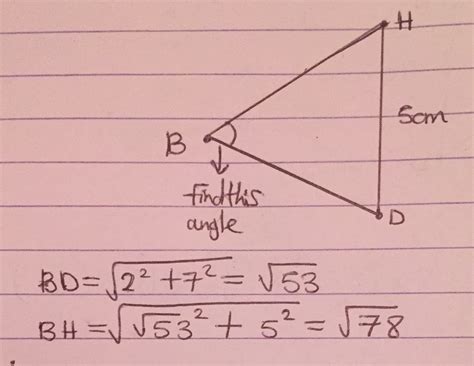 H
5cm
B
find this
angle
D
BD = √2² + 7² = √53
BH = √√53² + 5² = √78